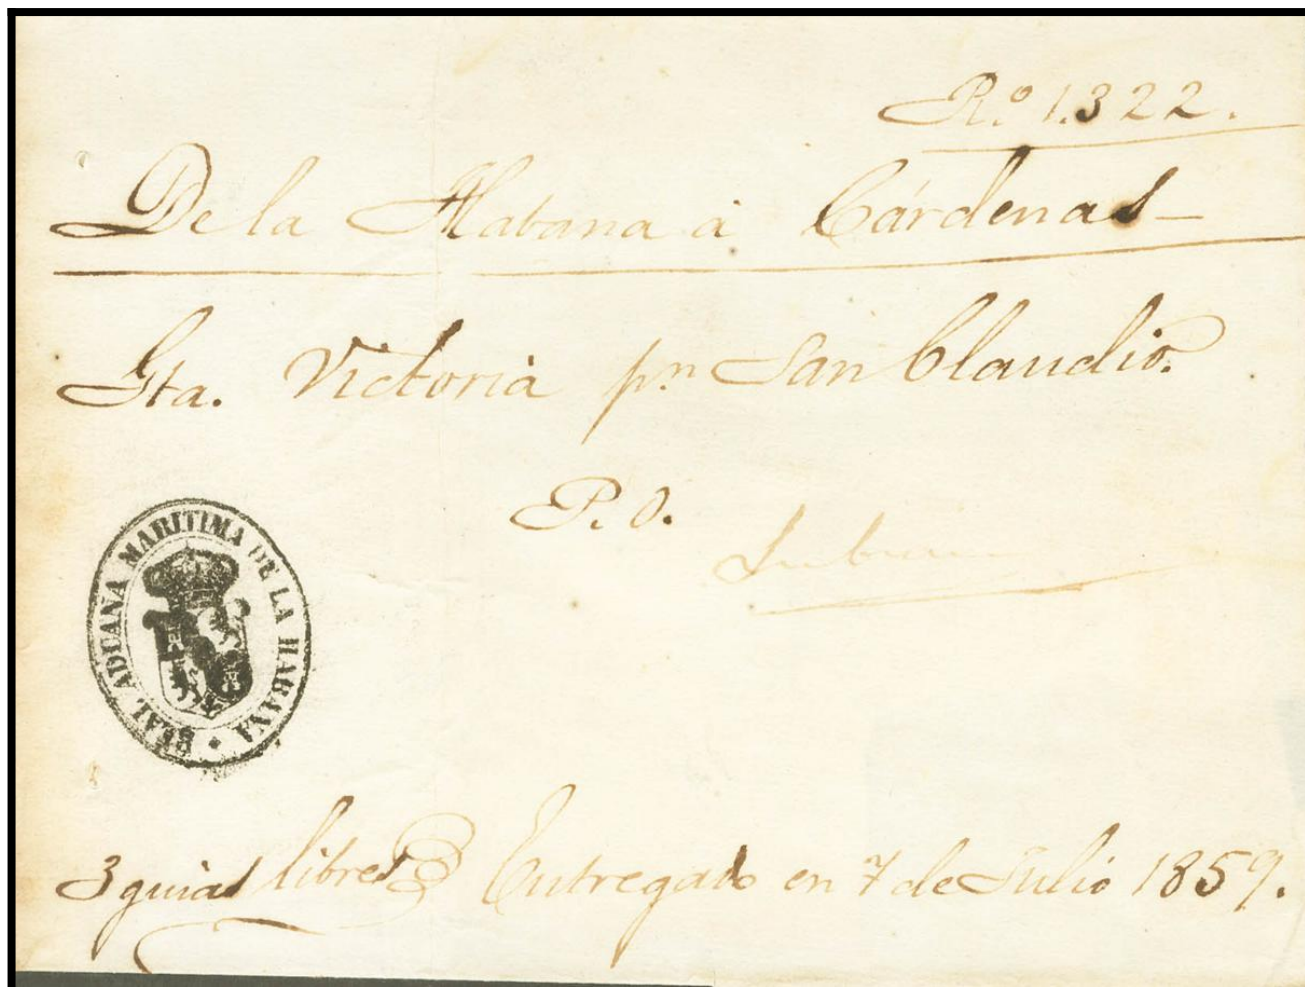 R.º 1.322.
De la Habana á Cárdenas
Gta. Victoria p.n San Claudio.
P. O.
REAL ADUANA MARITIMA DE LA HABANA
3 guias libres Entregado en 7 de Julio 1859.